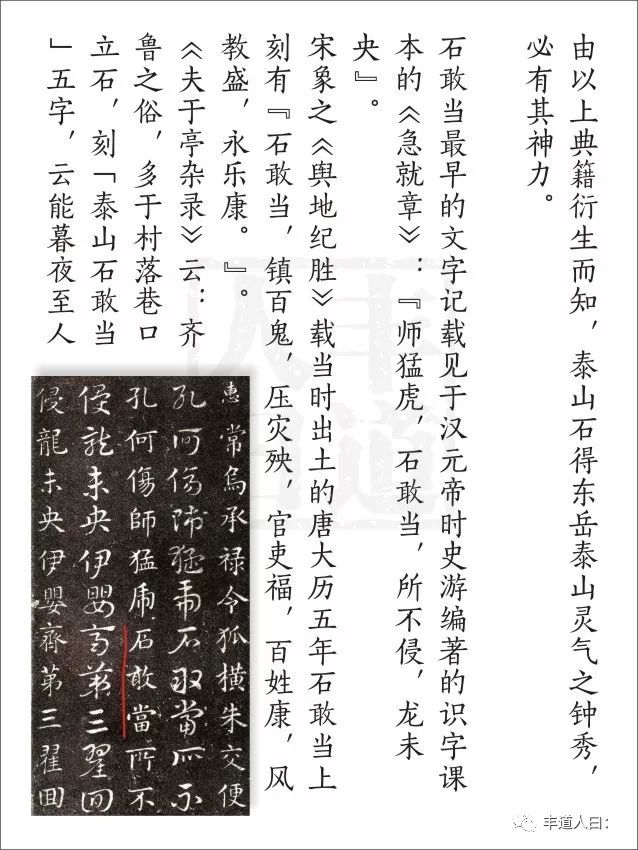 由以上典籍衍生而知，泰山石得东岳泰山灵气之钟秀，
必有其神力。
石敢当最早的文字记载见于汉元帝时史游编著的识字课
本的《急就章》：『师猛虎，石敢当，所不侵，龙未
央』。
宋象之《舆地纪胜》载当时出土的唐大历五年石敢当上
刻有『石敢当，镇百鬼，压灾殃，官吏福，百姓康，风
教盛，永乐康。』。
《夫于亭杂录》云：齐
鲁之俗，多于村落巷口
立石，刻「泰山石敢当
」五字，云能暮夜至人
惠常烏承禄令狐横朱交便
孔何傷師猛虎石敢當所不
孔何傷師猛虎石敢當所不
侵龍未央伊嬰齊第三翟回
侵龍未央伊嬰齊第三翟回
丰道人曰
丰道人曰: